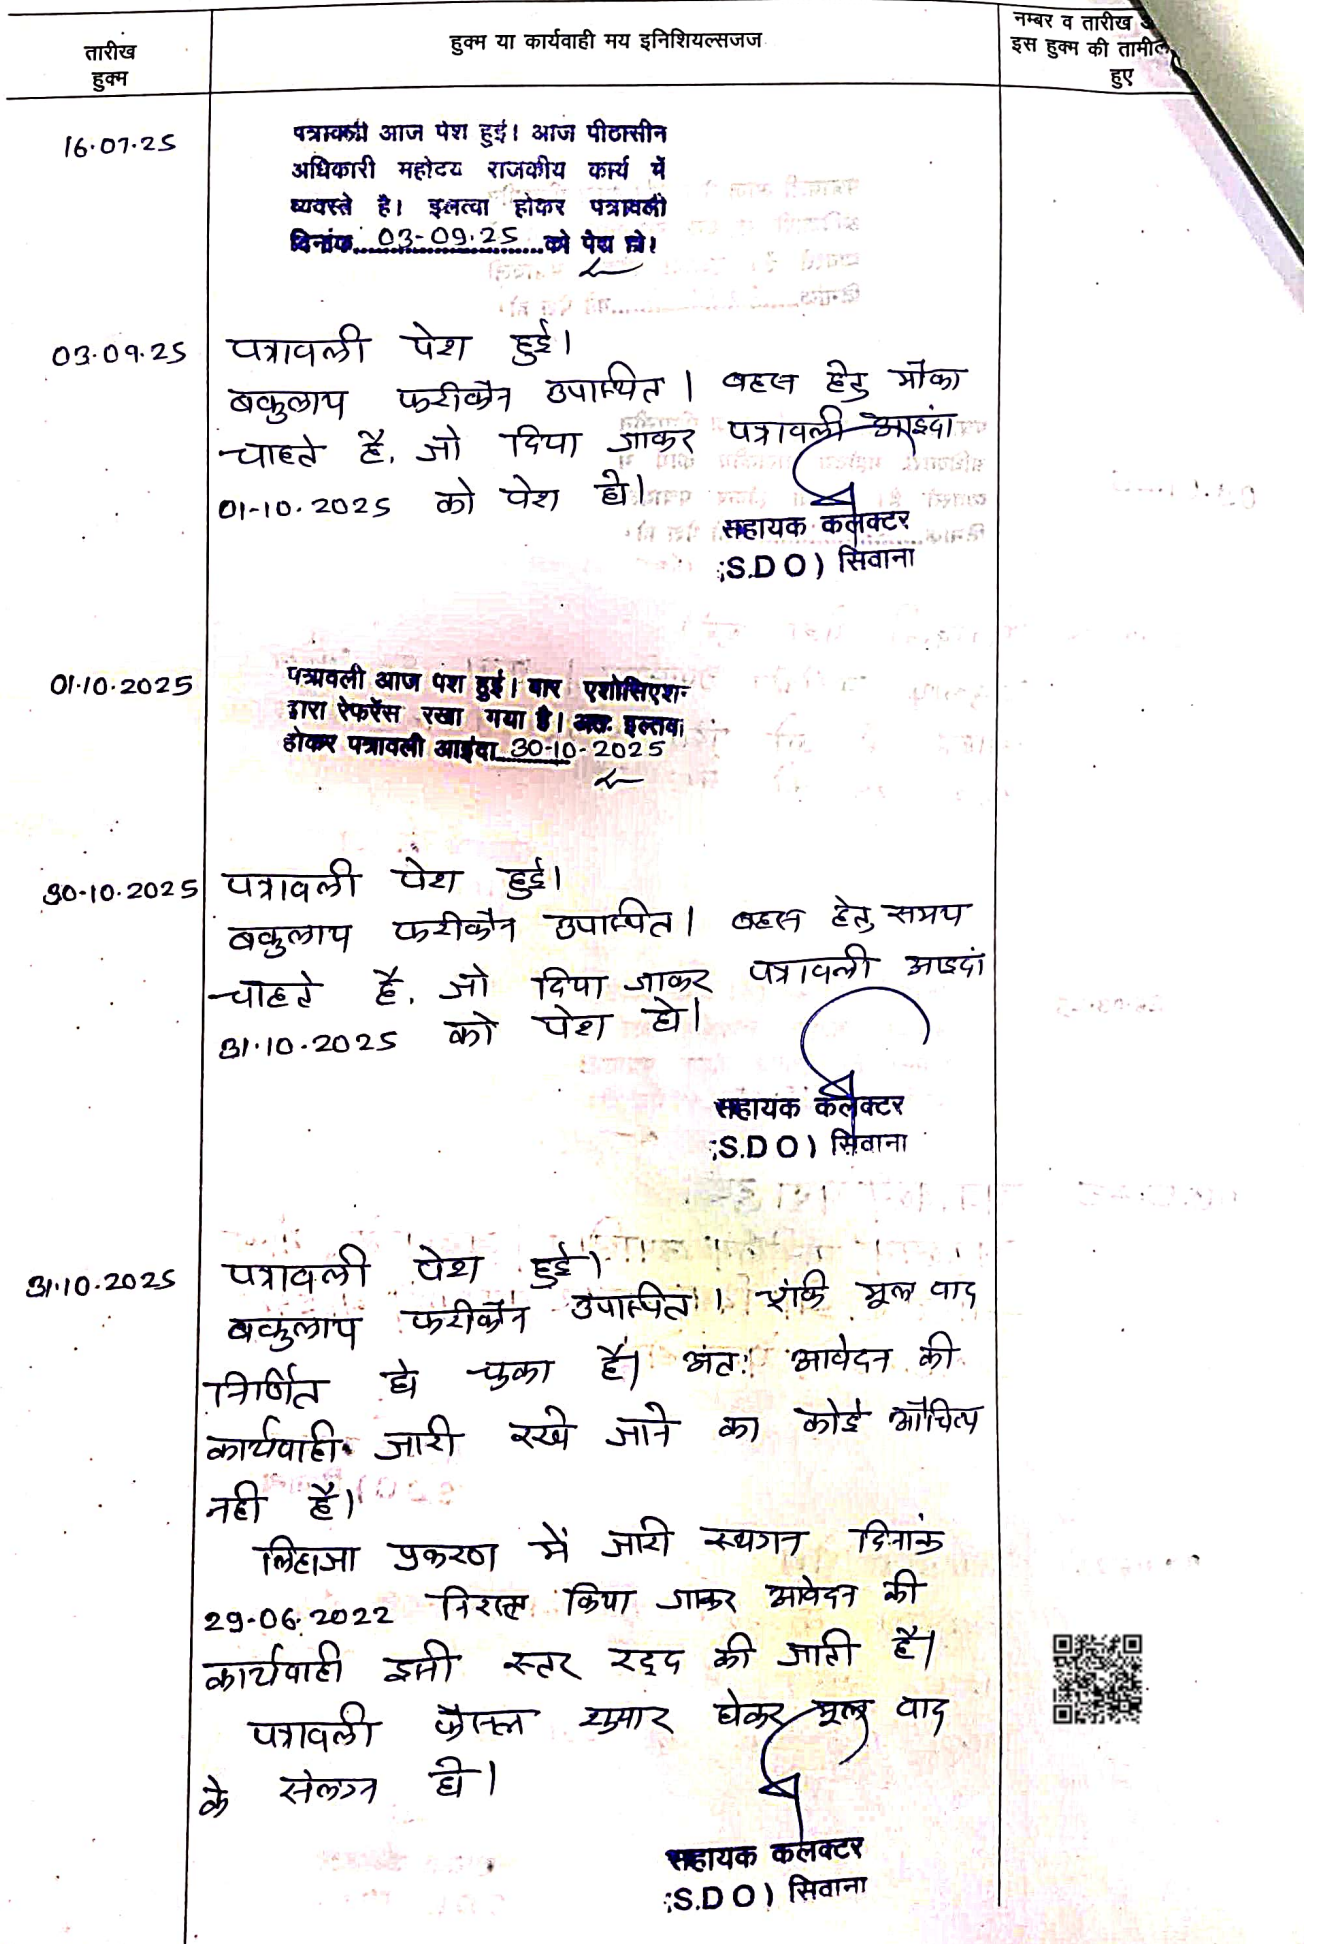 तारीख
हुक्म
हुक्म या कार्यवाही मय इनिशियल्सजज
नम्बर व तारीख
इस हुक्म की तामील
हुए
16.07.25
पत्रावली आज पेश हुई। आज पीठासीन
अधिकारी महोदय राजकीय कार्य में
व्यवस्ते है। इलत्वा होकर पत्रावली
दिनांक 03-09.25 को पेश हो।
03.09.25
पत्रावली पेश हुई।
बकुलाय फरीकैन उपस्थित। बहस हेतु मौका
चाहते है, जो दिया जाकर पत्रावली आइंदा
01-10.2025 को पेश हो।
सहायक कलक्टर
(S.D O) सिवाना
01.10.2025
पत्रावली आज पेश हुई। बार एशोसिएशन
द्वारा रेफरेंस रखा गया है। अतः इल्तवा
होकर पत्रावली आइंदा 30-10-2025
30-10.2025
पत्रावली पेश हुई।
बकुलाय फरीकैन उपस्थित। बहस हेतु समय
चाहते है, जो दिया जाकर पत्रावली आइदां
31.10.2025 को पेश हो।
सहायक कलक्टर
(S.D O) सिवाना
31.10.2025
पत्रावली पेश हुई।
बकुलाय फरीकैन उपस्थित। चूंकि मूल वाद
निर्णित हो चुका है। अंतः आवेदन की
कार्यवाही जारी रखे जाने का कोई औचित्य
नही है।
लिहाजा प्रकरण में जारी स्थगन दिनांक
29-06.2022 निरस्त किया जाकर आवेदन की
कार्यवाही इसी स्तर रद्द की जाती है।
पत्रावली फैसल शुमार होकर मूल वाद
के संलग्न हो।
सहायक कलक्टर
(S.D O) सिवाना